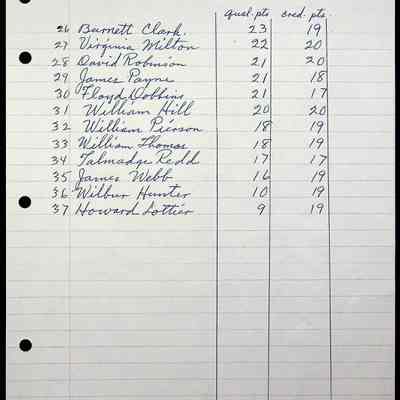 qual. pts. cred. pts.
26 Burnett Clark. 23 19
27 Virginia Milton 22 20
28 David Robinson 21 20
29 James Payne 21 18
30 Floyd Dobbins 21 17
31 William Hill 20 20
32 William Pierson 18 19
33 William Thomas 18 19
34 Talmadge Redd 17 17
35 James Webb 16 19
36 Wilbur Hunter 10 19
37 Howard Lottier 9 19